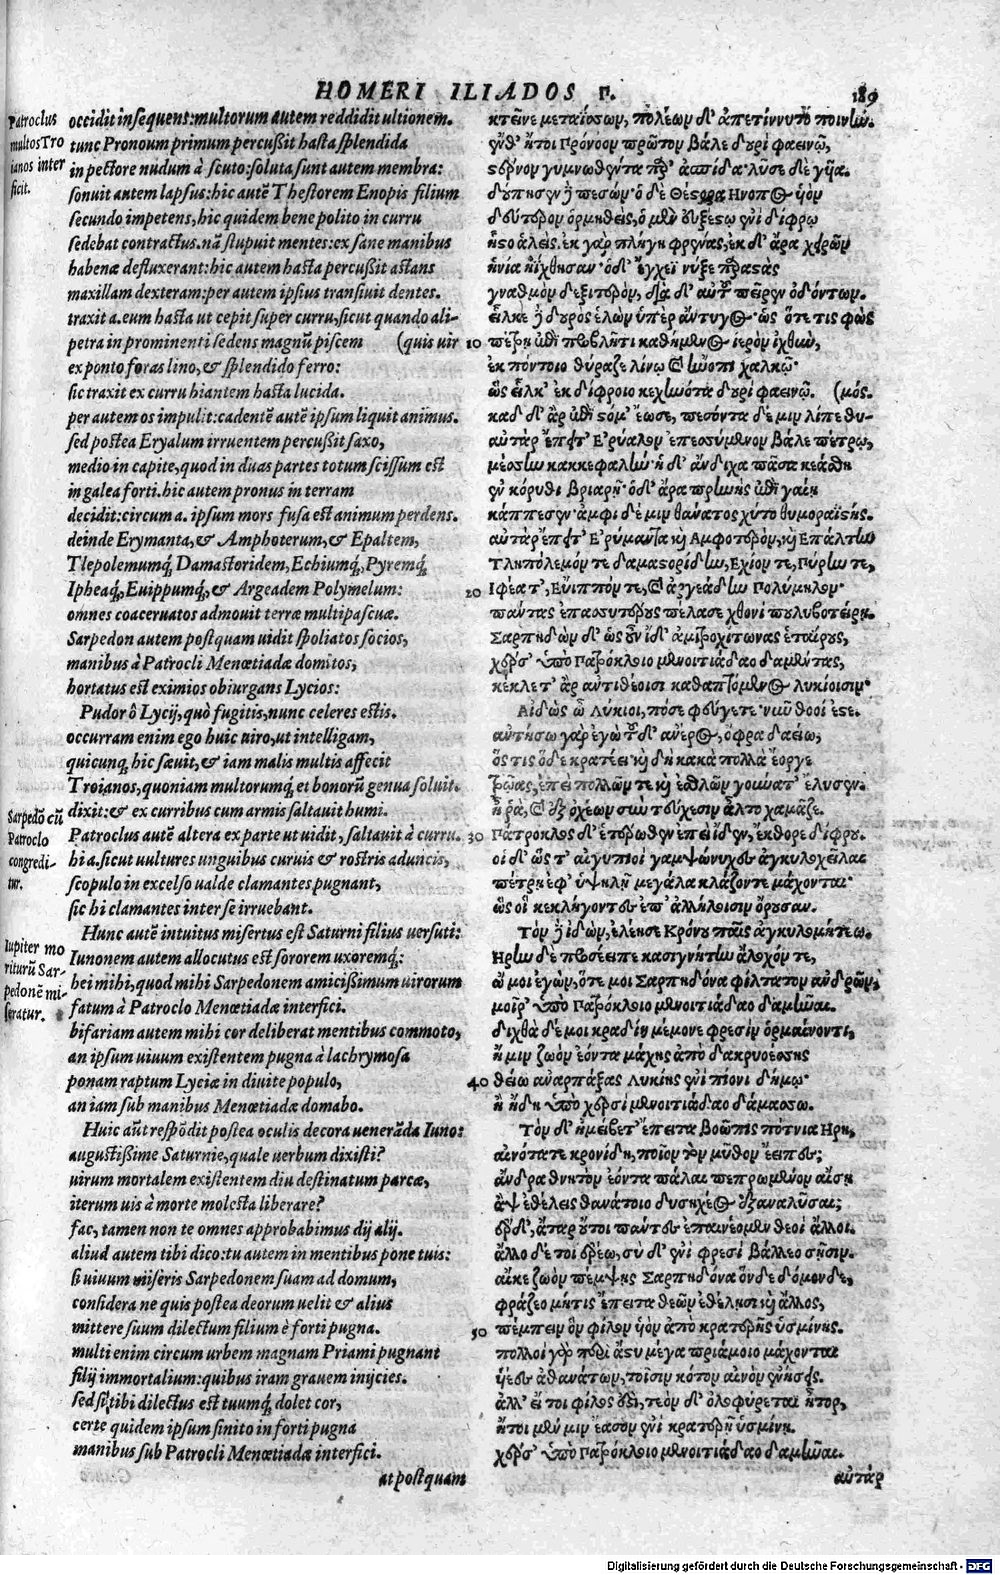 HOMERI ILIADOS Γ. 189
Patroclus
multos Tro
ianos inter
ficit.
occidit insequens: multorum autem reddidit ultionem.
tunc Pronoum primum percußit hasta splendida
in pectore nudum à scuto: soluta sunt autem membra:
sonuit autem lapsus: hic autẽ Thestorem Enopis filium
secundo impetens, hic quidem bene polito in curru
sedebat contractus. nã stupuit mentes: ex sane manibus
habenæ defluxerant: hic autem hasta percußit astans
maxillam dexteram: per autem ipsius transiuit dentes.
traxit a. eum hasta ut cepit super curru, sicut quando ali-
petra in prominenti sedens magnũ piscem (quis uir
ex ponto foras lino, & splendido ferro:
sic traxit ex curru hiantem hasta lucida.
per autem os impulit: cadentẽ autẽ ipsum liquit animus.
sed postea Eryalum irruentem percußit saxo,
medio in capite, quod in duas partes totum scissum est
in galea forti. hic autem pronus in terram
decidit: circum a. ipsum mors fusa est animum perdens.
deinde Erymanta, & Amphoterum, & Epaltem,
Tlepolemumq́; Damastoridem, Echiumq́;, Pyremq́;
Ipheaq́;, Euippumq́;, & Argeadem Polymelum:
omnes coaceruatos admouit terræ multipascuæ.
Sarpedon autem postquam uidit spoliatos socios,
manibus à Patrocli Menœtiadæ domitos,
hortatus est eximios obiurgans Lycios:
Pudor ô Lycij, quò fugitis, nunc celeres estis.
occurram enim ego huic uiro, ut intelligam,
quicunq; hic sæuit, & iam malis multis affecit
Troianos, quoniam multorumq́; et bonorũ genua soluit.
Sarpedõ cũ
Patroclo
congredi-
tur.
dixit: & ex curribus cum armis saltauit humi.
Patroclus autẽ altera ex parte ut uidit, saltauit à curru.
hi a. sicut uultures unguibus curuis & rostris aduncis,
scopulo in excelso ualde clamantes pugnant,
sic hi clamantes inter se irruebant.
Hunc autẽ intuitus misertus est Saturni filius uersuti:
Iupiter mo
riturũ Sar-
pedonẽ mi-
seratur.
Iunonem autem allocutus est sororem uxoremq́;:
hei mihi, quod mihi Sarpedonem amicißimum uirorum
fatum à Patroclo Menœtiadæ interfici.
bifariam autem mihi cor deliberat mentibus commoto,
an ipsum uiuum existentem pugna à lachrymosa
ponam raptum Lyciæ in diuite populo,
an iam sub manibus Menœtiadæ domabo.
Huic aũt respõdit postea oculis decora uenerãda Iuno:
augustißime Saturnie, quale uerbum dixisti?
uirum mortalem existentem diu destinatum parcæ,
iterum uis à morte molesta liberare?
fac, tamen non te omnes approbabimus dij alij.
aliud autem tibi dico: tu autem in mentibus pone tuis:
si uiuum miseris Sarpedonem suam ad domum,
considera ne quis postea deorum uelit & alius
mittere suum dilectum filium è forti pugna.
multi enim circum urbem magnam Priami pugnant
filij immortalium: quibus iram grauem inijcies.
sed si tibi dilectus est tuumq́; dolet cor,
certe quidem ipsum sinito in forti pugna
manibus sub Patrocli Menœtiadæ interfici.
at postquam
κτεῖνε μεταΐσσων, πολέων δ' ἀπετίννυτο ποινήν.
ἔνθ' ἤτοι Πρόνοον πρῶτον βάλε δουρὶ φαεινῷ,
στέρνον γυμνωθέντα παρ' ἀσπίδα· λῦσε δὲ γυῖα.
δούπησεν ἢ πεσών· ὁ δὲ Θέστορα Ηνοπος υἱὸν
δεύτερον ὁρμηθεὶς, ὁ μὲν εὐξέστῳ ἐνὶ δίφρῳ
ἧστο ἀλείς. ἐκ γὰρ πλήγη φρένας, ἐκ δ' ἄρα χειρῶν
ἡνία ἠΐχθησαν· ὁ δ' ἔγχεϊ νύξε παραστὰς
γναθμὸν δεξιτερὸν, διὰ δ' αὐτοῦ πεῖρεν ὀδόντων.
εἷλκε δὲ δουρὸς ἑλὼν ὑπὲρ ἄντυγος· ὡς ὅτε τις φὼς
10 πέτρῃ ἐπὶ προβλῆτι καθήμενος ἱερὸν ἰχθὺν,
ἐκ πόντοιο θύραζε λίνῳ καὶ ἤνοπι χαλκῷ·
ὣς εἷλκ' ἐκ δίφροιο κεχηνότα δουρὶ φαεινῷ. (μός.
καδ δ' ἂρ ἐπὶ στόμ' ἔωσε, πεσόντα δέ μιν λίπε θυ-
αὐτὰρ ἔπειτ' Ἐρύαλον ἐπεσσύμενον βάλε πέτρῳ,
μέσσην κακκεφαλήν· ἡ δ' ἄνδιχα πᾶσα κεάσθη
ἐν κόρυθι βριαρῇ· ὁ δ' ἄρα πρηνὴς ἐπὶ γαίῃ
κάππεσεν· ἀμφὶ δέ μιν θάνατος χύτο θυμοραϊστής.
αὐτὰρ ἔπειτ' Ἐρύμαντα καὶ Αμφοτερὸν, καὶ Επάλτην
Τληπόλεμόν τε δαμαστορίδην, Εχίον τε, Πύρην τε,
20 Ιφέα τ', Εὔιππόν τε, καὶ ἀργεάδην Πολύμηλον·
πάντας ἐπασσυτέρους πέλασε χθονὶ πουλυβοτείρῃ.
Σαρπηδὼν δ' ὡς οὖν ἴδ' ἀμιτροχίτωνας ἑταίρους,
χέρσ' ὑπὸ Πατρόκλοιο μενοιτιάδαο δαμέντας,
κέκλετ' ἂρ ἀντιθέοισι καθαπτόμενος λυκίοισιν·
Αἰδὼς ὦ Λύκιοι, πόσε φεύγετε· νῦν θοοὶ ἐστε.
ἀντήσω γὰρ ἐγὼ τοῦδ' ἀνέρος, ὄφρα δαείω,
ὅς τις ὅδε κρατέει· καὶ δὴ κακὰ πολλὰ ἔοργε
Τρῶας, ἐπεὶ πολλῶν τε καὶ ἐσθλῶν γούνατ' ἔλυσεν.
ἦ ῥὰ, καὶ ἐξ ὀχέων σὺν τεύχεσιν ἆλτο χαμᾶζε.
30 Πάτροκλος δ' ἑτέρωθεν ἐπεὶ ἴδεν, ἔκθορε δίφρου.
οἱ δ' ὥς τ' αἰγυπιοὶ γαμψώνυχες ἀγκυλοχεῖλαι
πέτρῃ ἐφ' ὑψηλῇ μεγάλα κλάζοντε μάχονται·
ὣς οἳ κεκλήγοντες ἐπ' ἀλλήλοισιν ὄρουσαν.
Τὸν δὲ ἰδὼν, ἐλέησε Κρόνου παῖς ἀγκυλομήτεω.
Ηρην δὲ προσέειπε κασιγνήτην ἄλοχόν τε,
ὤ μοι ἐγὼν, ὅτε μοι Σαρπηδόνα φίλτατον ἀνδρῶν,
μοῖρ' ὑπὸ Πατρόκλοιο μενοιτιάδαο δαμῆναι.
διχθὰ δέ μοι κραδίη μέμονε φρεσὶν ὁρμαίνοντι,
ἤ μιν ζωὸν ἐόντα μάχης ἀπὸ δακρυοέσσης
40 θείω ἀναρπάξας Λυκίης ἐνὶ πίονι δήμῳ·
ἢ ἤδη ὑπὸ χερσὶ μενοιτιάδαο δάμασσω.
Τὸν δ' ἠμείβετ' ἔπειτα βοῶπις πότνια Ηρη,
αἰνότατε κρονίδη, ποῖον τὸν μῦθον ἔειπες;
ἄνδρα θνητὸν ἐόντα πάλαι πεπρωμένον αἴσῃ
ἂψ ἐθέλεις θανάτοιο δυσηχέος ἐξαναλῦσαι;
ἔρδ', ἀτὰρ οὔτοι πάντες ἐπαινέομεν θεοὶ ἄλλοι.
ἄλλο δέ τοι ἐρέω, σὺ δ' ἐνὶ φρεσὶ βάλλεο σῇσιν.
αἴκε ζωὸν πέμψῃς Σαρπηδόνα ὅνδε δόμονδε,
φράζεο μήτις ἔπειτα θεῶν ἐθέλῃσι καὶ ἄλλος,
50 πέμπειν ὃν φίλον υἱὸν ἀπὸ κρατερῆς ὑσμίνης.
πολλοὶ γὰρ περὶ ἄστυ μέγα πριάμοιο μάχονται
υἱέες ἀθανάτων, τοῖσιν κότον αἰνὸν ἐνήσεις.
ἀλλ' εἴ τοι φίλος ἐστὶ, τεὸν δ' ὀλοφύρεται ἦτορ,
ἤτοι μέν μιν ἔασον ἐνὶ κρατερῇ ὑσμίνῃ.
χέρσ' ὑπὸ Πατρόκλοιο μενοιτιάδαο δαμῆναι.
αὐτὰρ
Digitalisierung gefördert durch die Deutsche Forschungsgemeinschaft - DFG